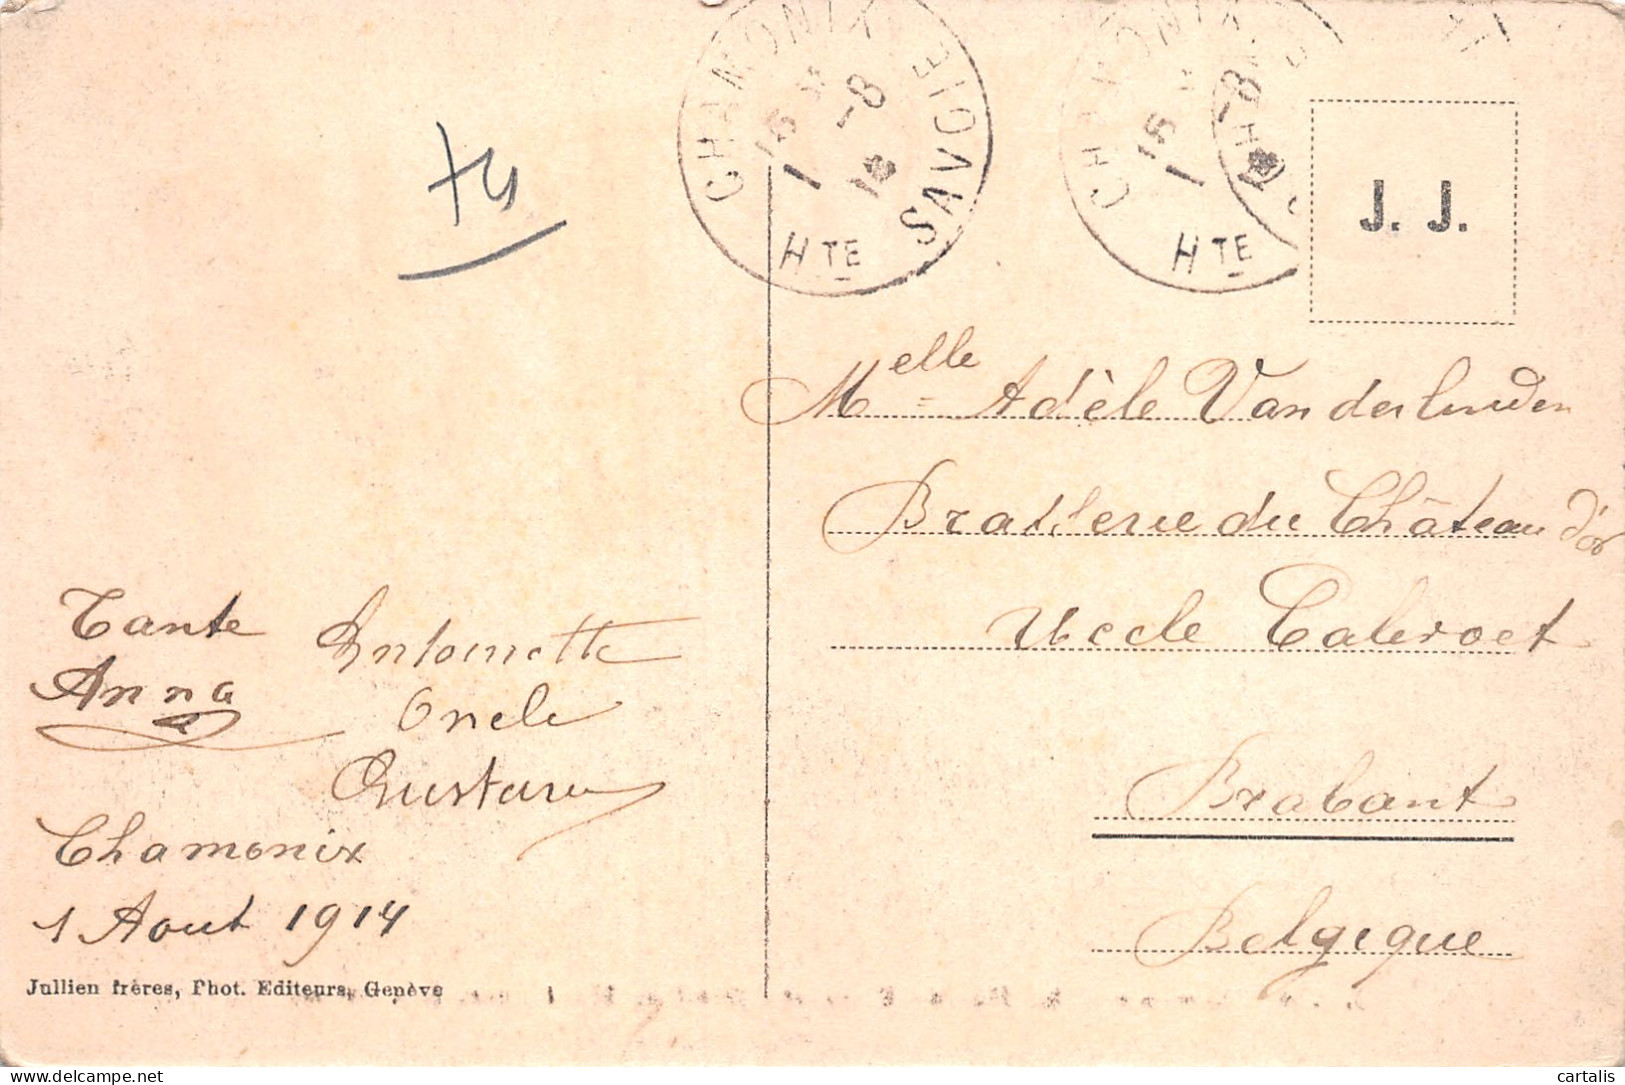 CHAMONIX
Hte SAVOIE
1 -8
CHAMONIX
Hte
1 -8
J. J.
Melle Adèle Vanderlinden
Brasserie du Château d'or
Uccle Calevoet
Brabant
Belgique
Tante
Anna
Antoinette
Oncle
Gustave
Chamonix
1 Aout 1914
Jullien frères, Phot. Editeurs, Genève
cartalis